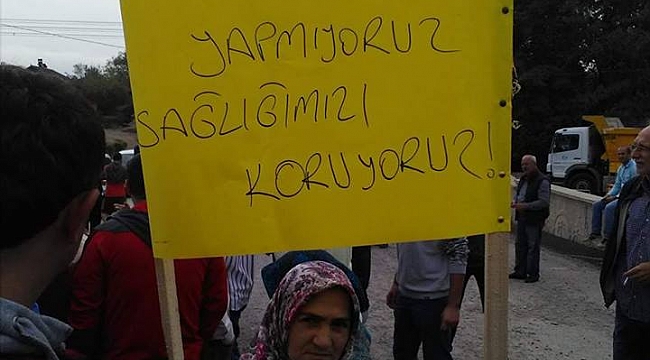 YAPMIYORUZ
SAĞLIĞIMIZI
KORUYORUZ!